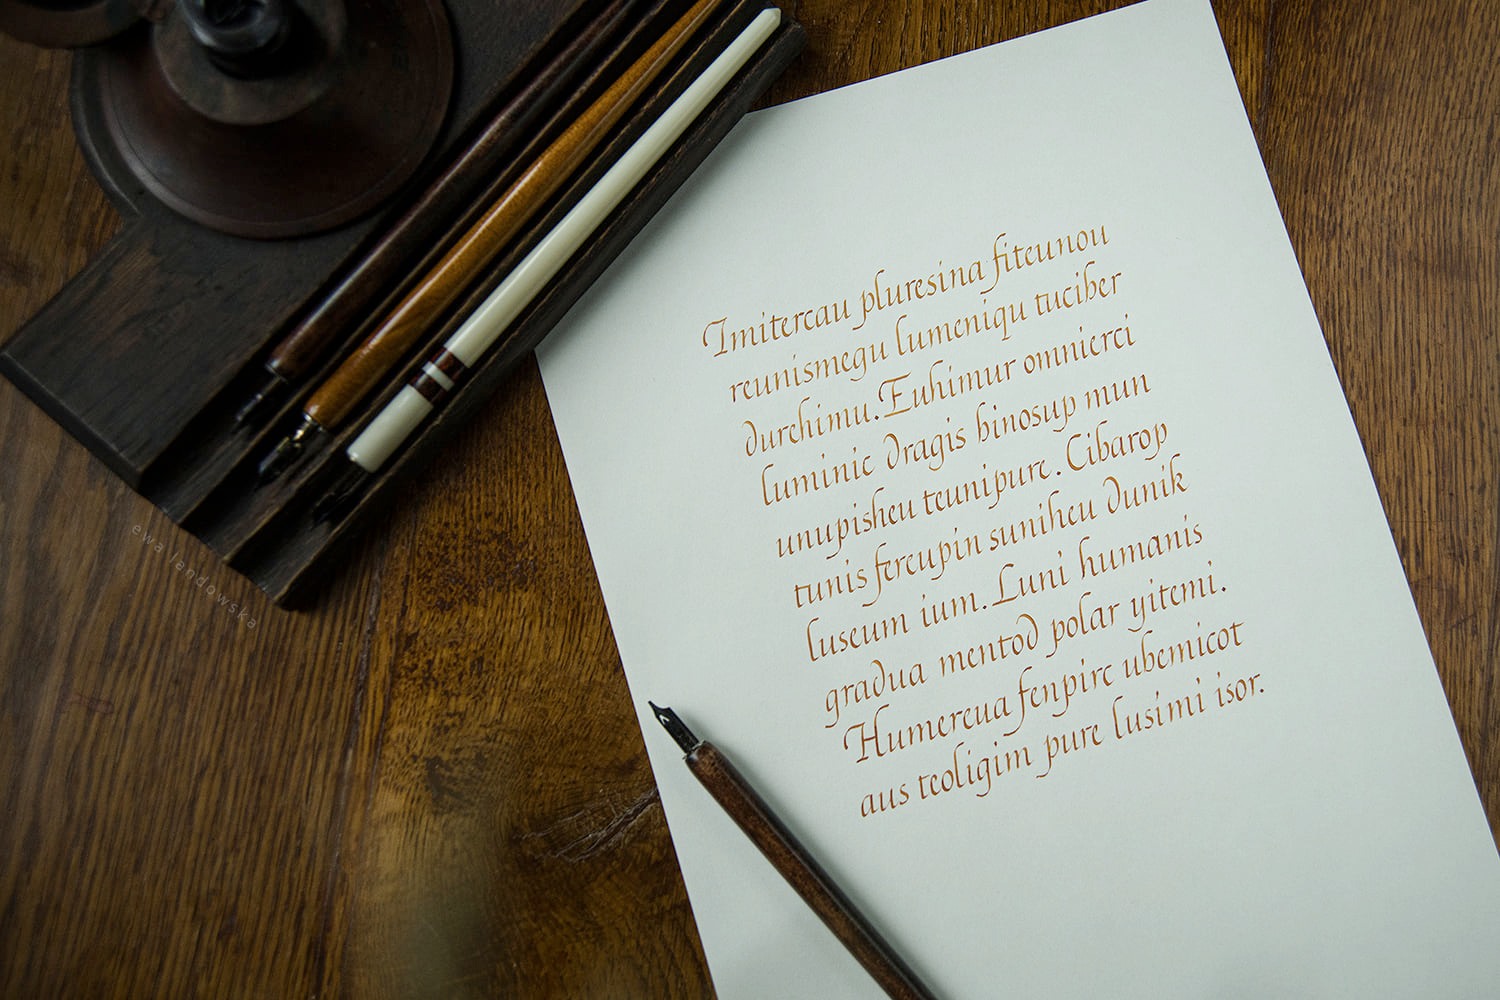 Imitercau pluresina fiteunou
reunismegu lumeniqu tuciber
durchimu. Euhimur omnierci
luminic dragis binosup mun
unupisheu teunipure. Cibarop
tunis fercupin suniheu dunik
luseum ium. Luni humanis
gradua mentod polar yitemi.
Humereua fenpire ubemicot
aus teoligim pure lusimi isor.
ewa landowska